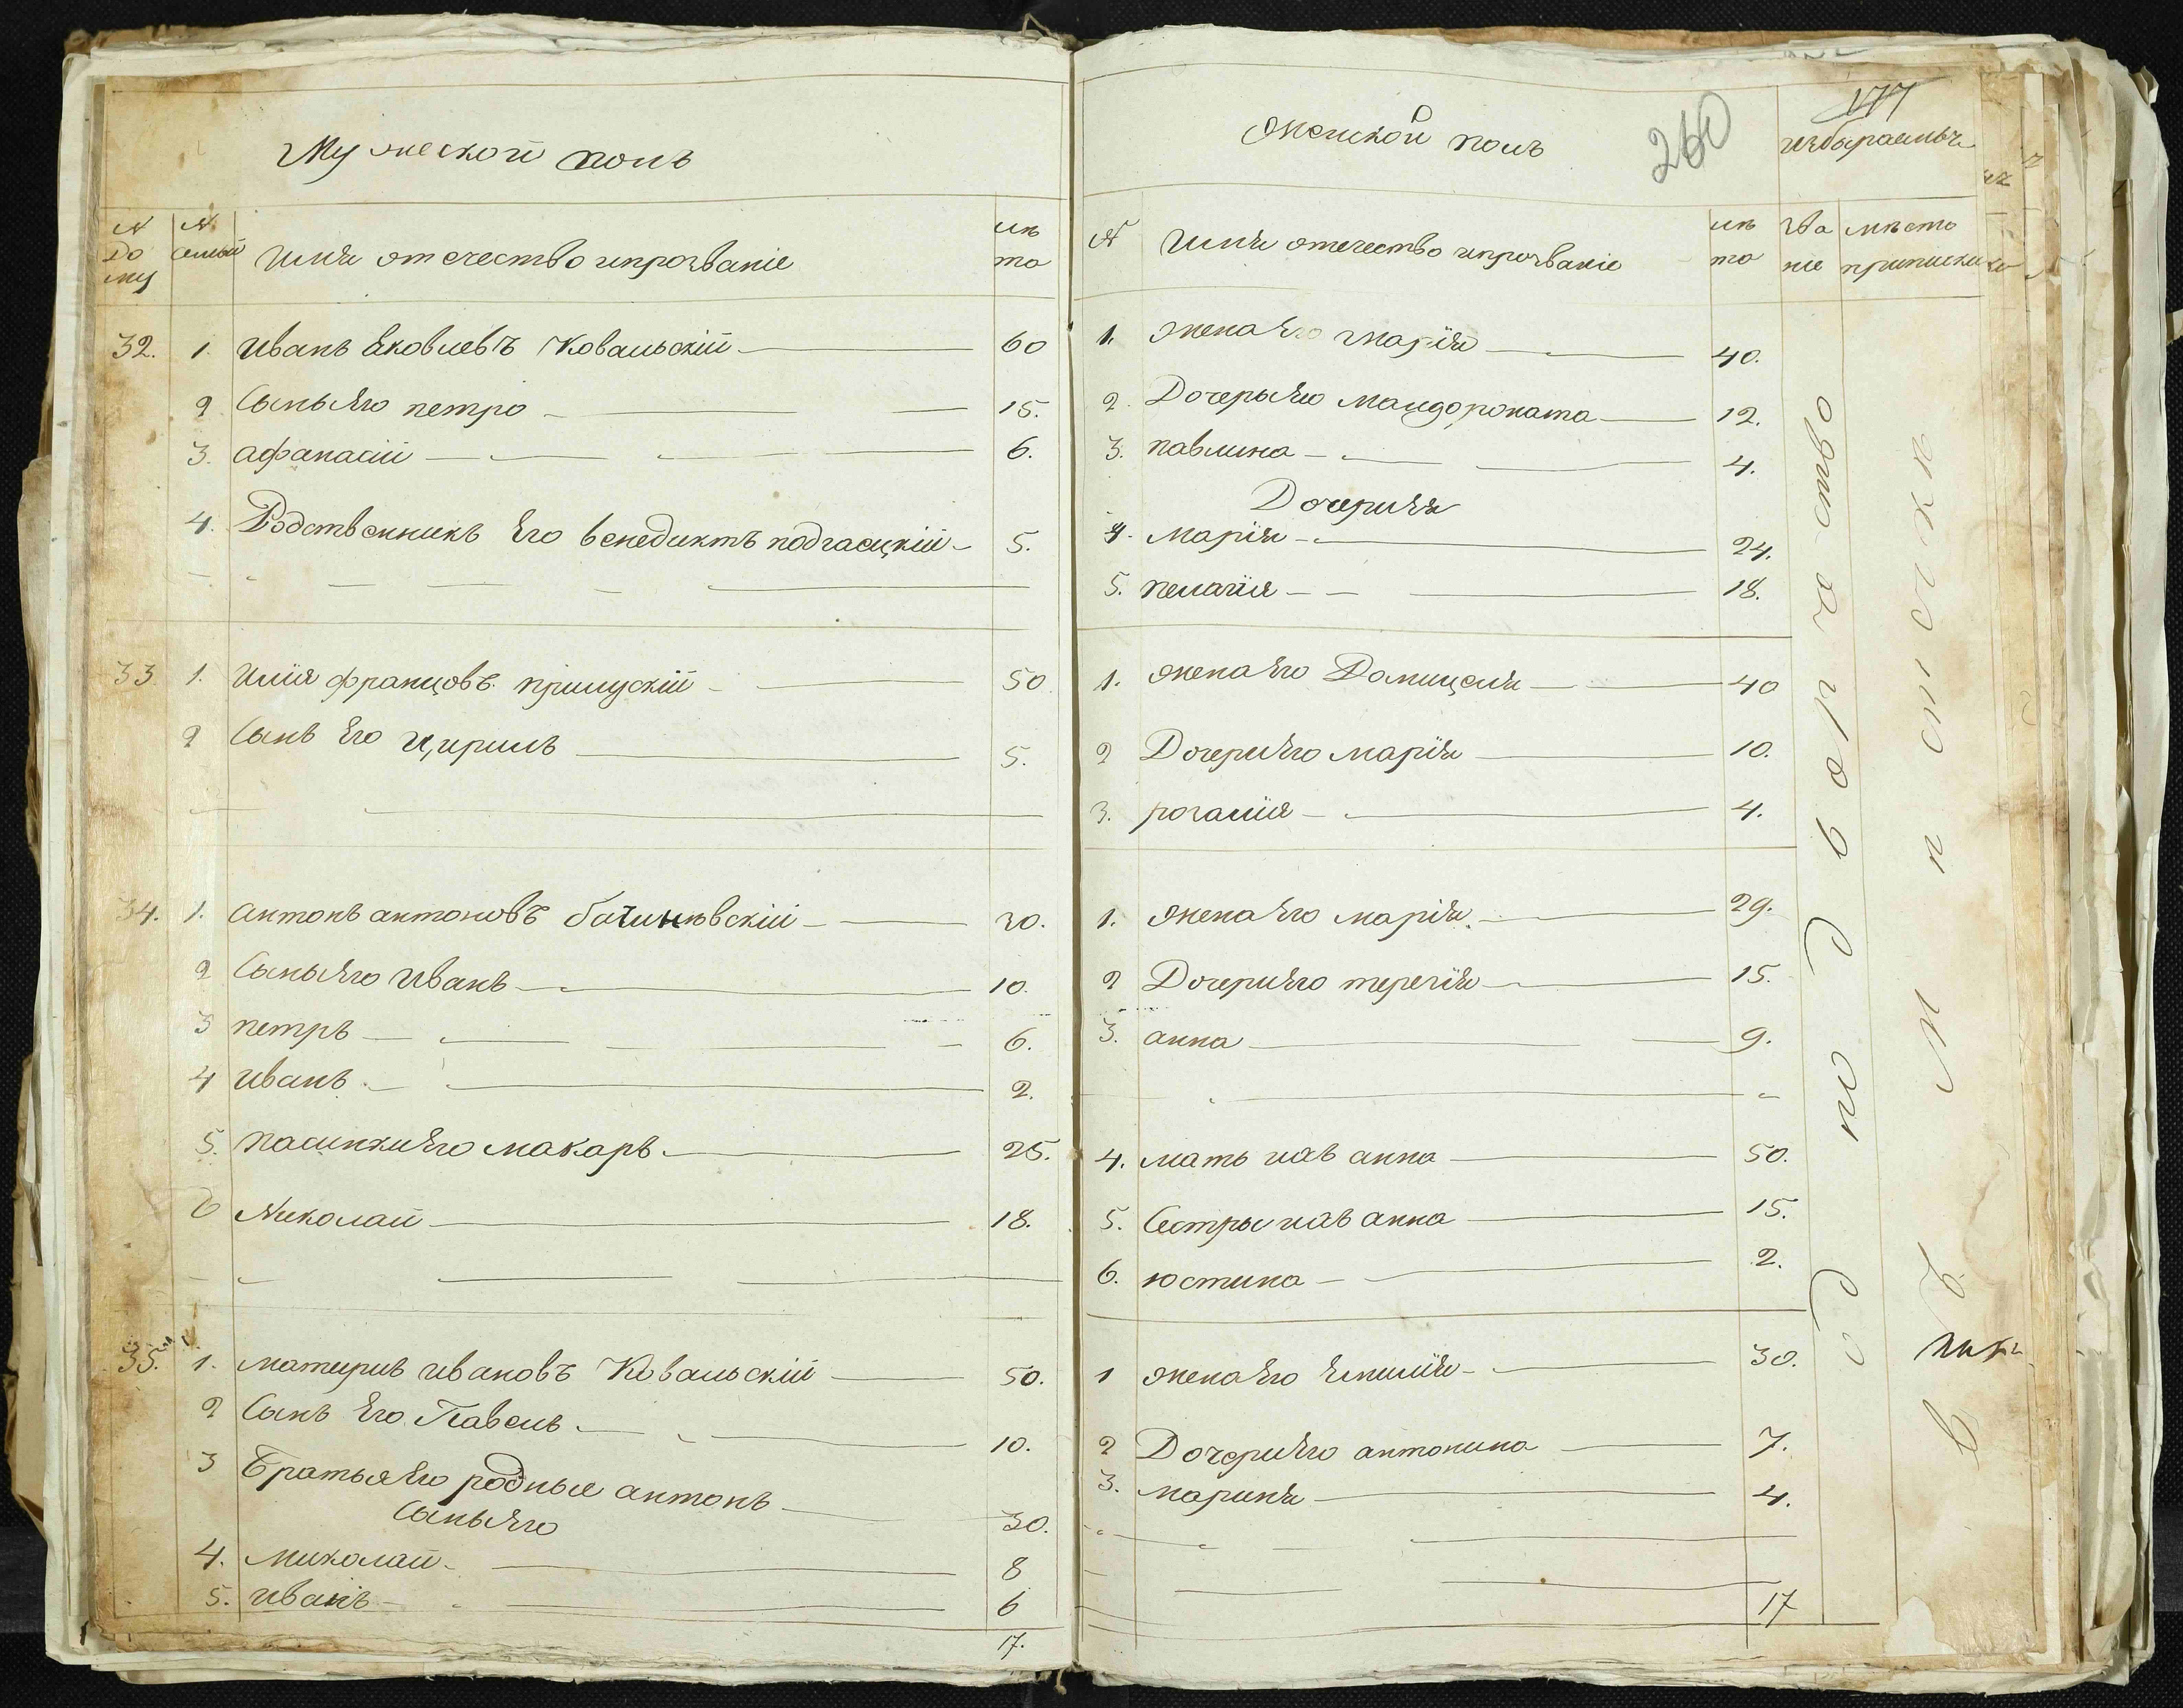 Мужеской полъ
N до му
N семьи
Имя отечество ипрозваніе
лѣ та
32. 1. Иванъ Яковлевъ Ковальскій 60
2. Сыны Его петро 15.
3. афанасій 6.
4. Родственникъ Его венедиктъ подгаецкій 5.
33 1. Илія францовъ прилускій 50.
2 Сынъ Его Кирилъ 5.
34. 1. антонъ антоновъ 30.
2 Сыны Его Иванъ 10.
3 петръ 6.
4 Иванъ 2.
5. пасинки Его макаръ 25.
6 Николай 18.
35. 1. Ивановъ Ковальскій 50.
2 Сынъ Его Павелъ 10.
3 Братья Его родные антонъ 30.
Сыны Его
4. Миколай 8
5. Иванъ 6
17.
Женской полъ
260
177
избираемыхъ
N
Имя отечество ипрозваніе
лѣ та
зва ніе
мѣсто приписки
1. жена Его Марія 40.
2. Дочеры Его 12.
3. павлина 4.
Дочерия
4. марія 24.
5. пелагія 18.
1. жена Его Домицеля 40
2 Дочери Его марія 10.
3. розалія 4.
1. жена Его марія 29.
2 Дочери Его терезія 15.
3. анна 9.
4. мать ихъ анна 50.
5. Сестры ихъ анна 15.
6. юстина 2.
1 жена Его Емилія 30.
2 Дочери Его антонина 7.
3. мариня 4.
17